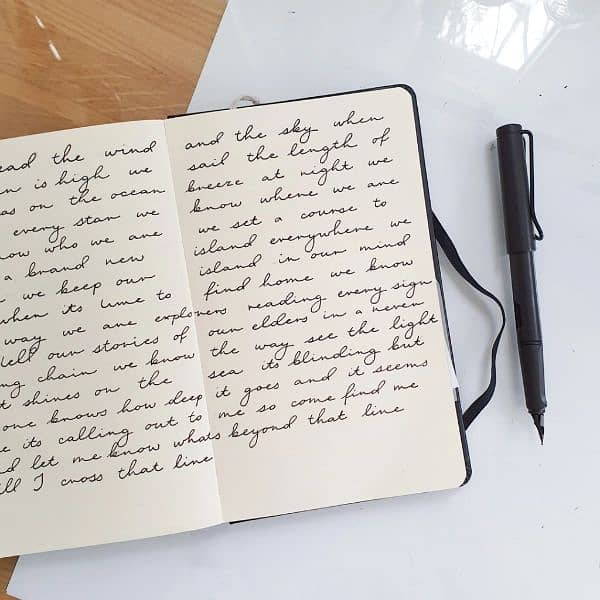 ead the wind and the sky when
n is high we sail the length of
as on the ocean breeze at night we
every star we know where we are
now who we are we set a course to
a brand new island everywhere we
we keep our island in our mind
when its time to find home we know
way we are explorers reading every sign
tell our stories of our elders in a never
ng chain we know the way see the light
t shines on the sea its blinding but
one knows how deep it goes and it seems
e its calling out to me so come find me
d let me know whats beyond that line
ll I cross that line